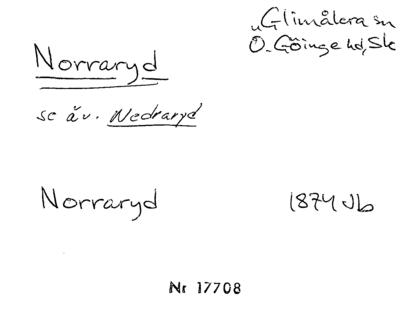 Glimåkra sn
Norraryd
Ö. Göinge hd, Sk
se äv. Nedraryd
Norraryd 1874 Jb
Nr 17708